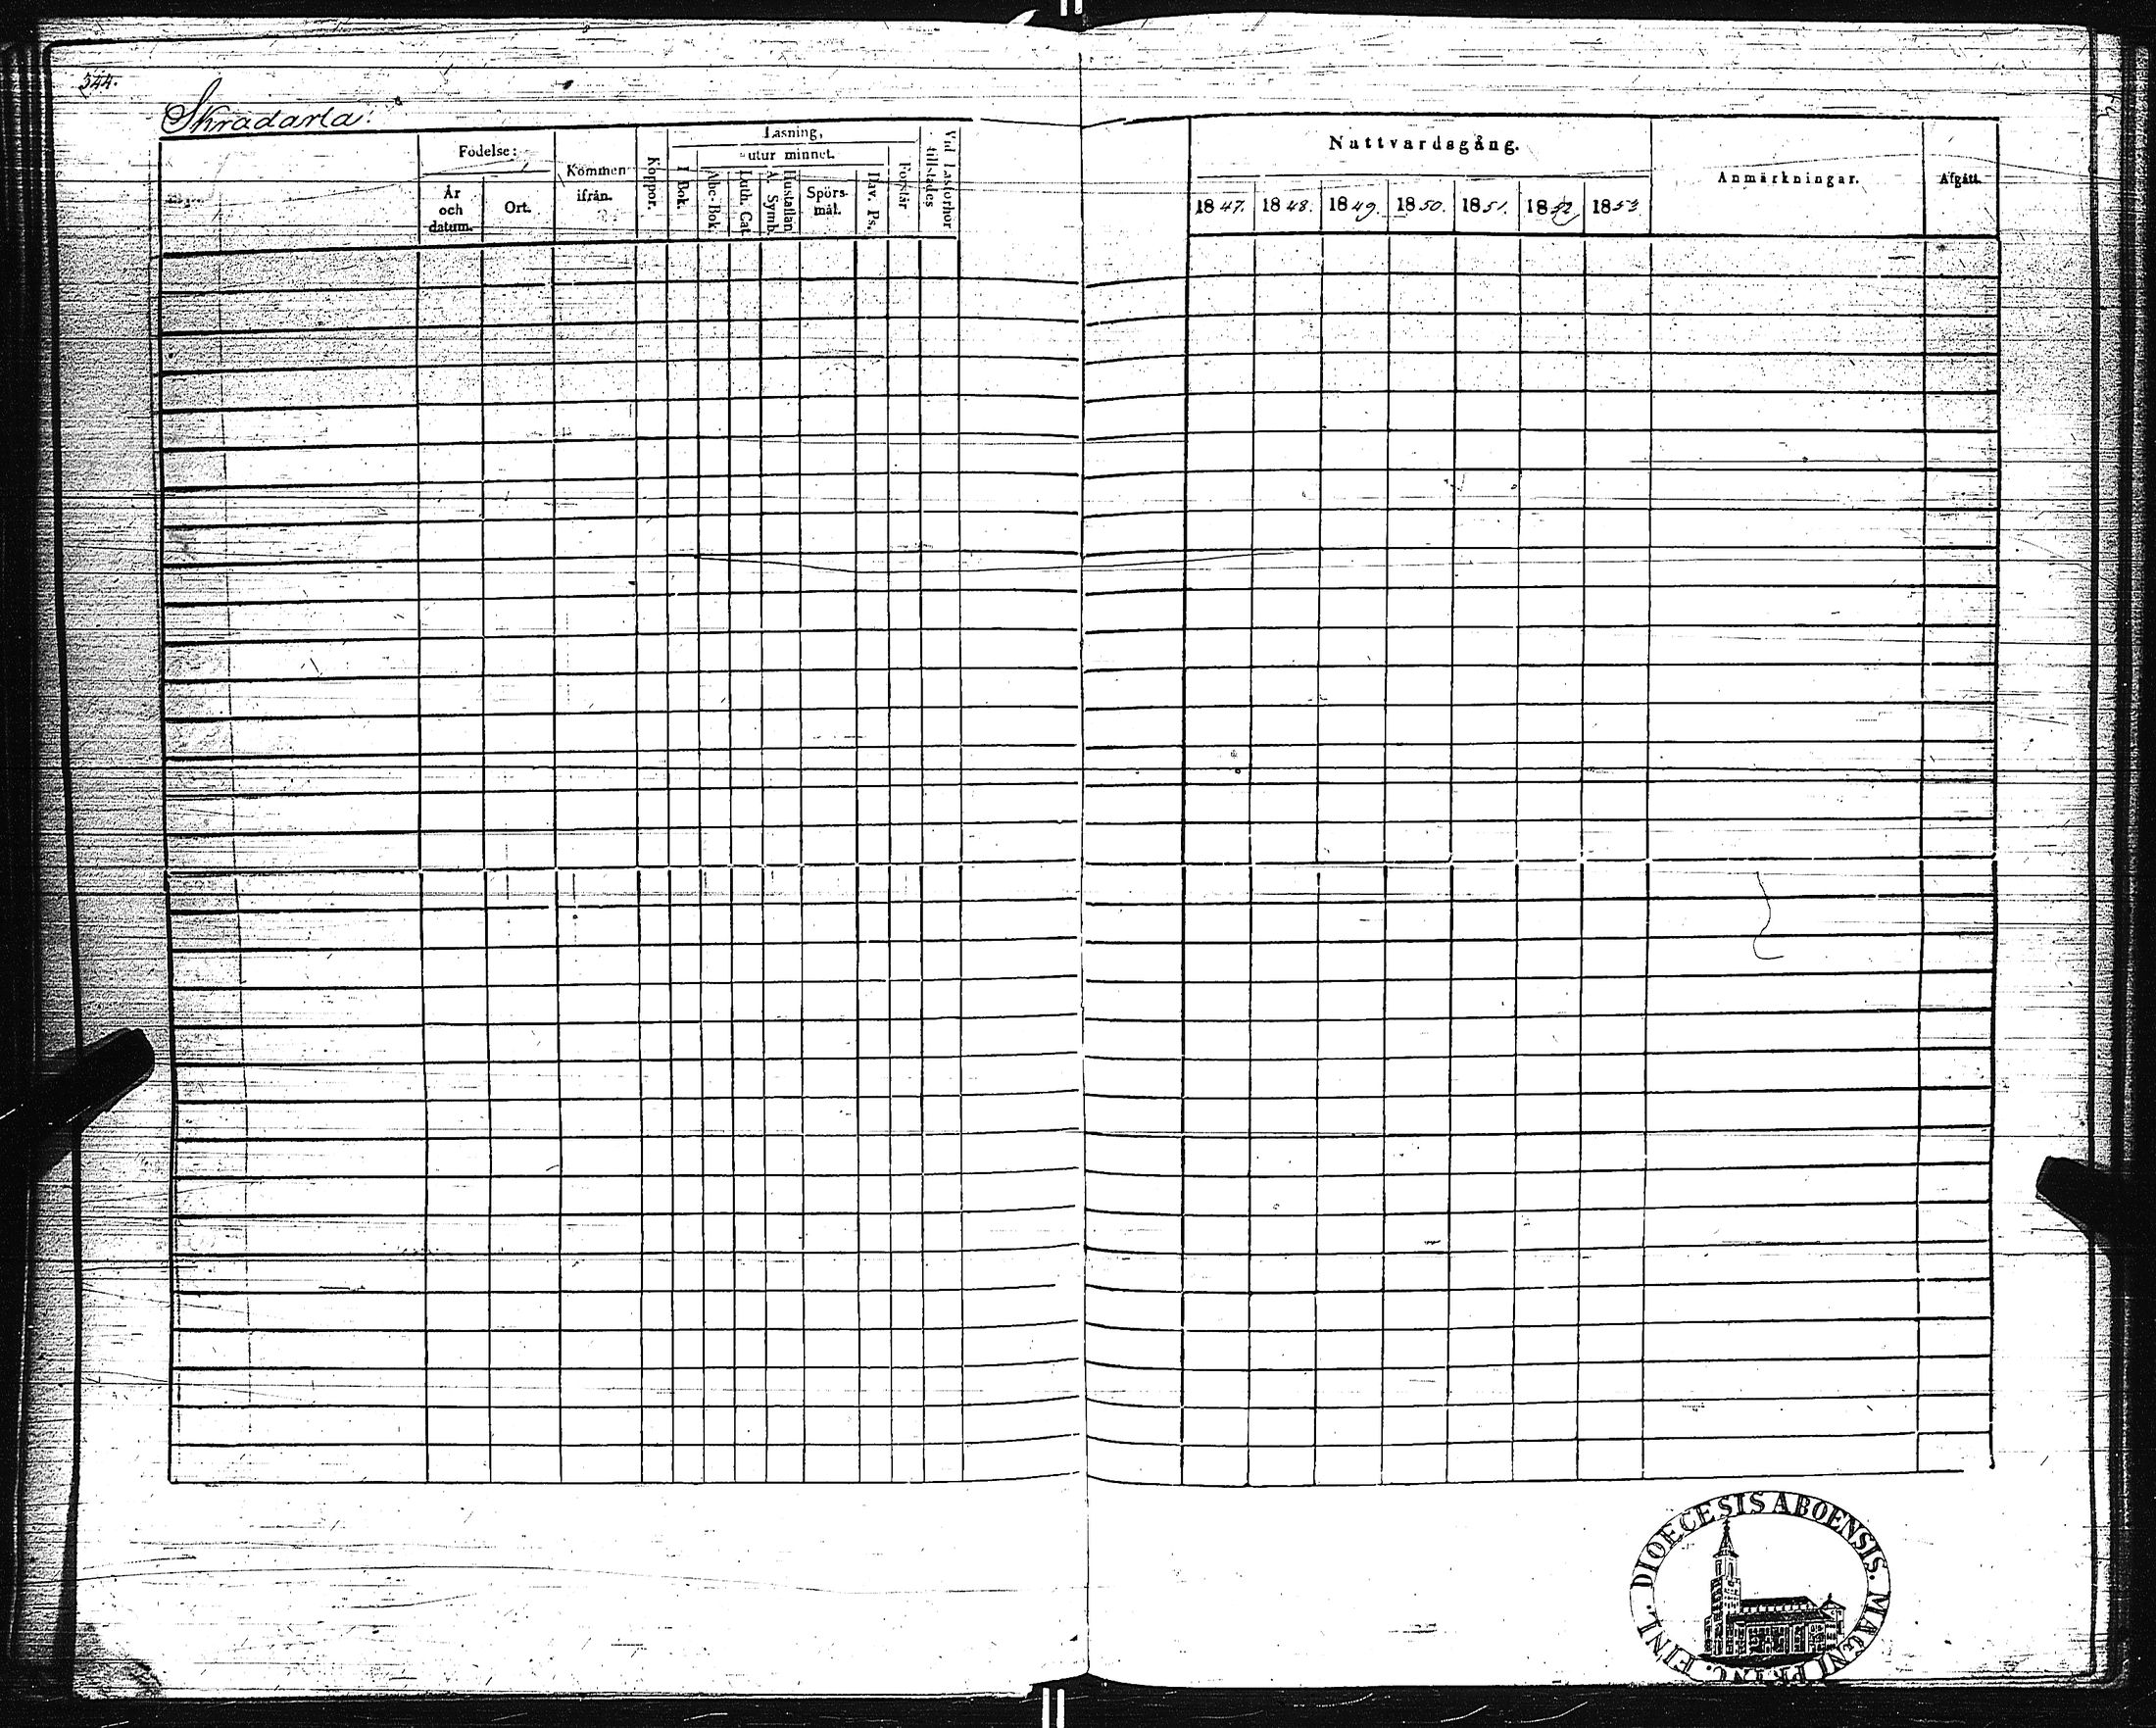 344.
Skradarla.
Födelse:
År
och
datum.
Ort.
Kommen
ifrån.
Koppor.
Läsning,
utur minnet.
I Bok.
Abc-Bok
Luth. Cat.
Hustaflan
A. Symb.
Spörs-
mål.
Dav. Ps.
Förstår
Vid Läsförhör
tillstädes
Nattvardsgång.
1847. 1848. 1849. 1850. 1851. 1852 1853
Anmärkningar.
Afgått.
DIOECESIS ABOENSIS. MAGNI PRINC. FINL.